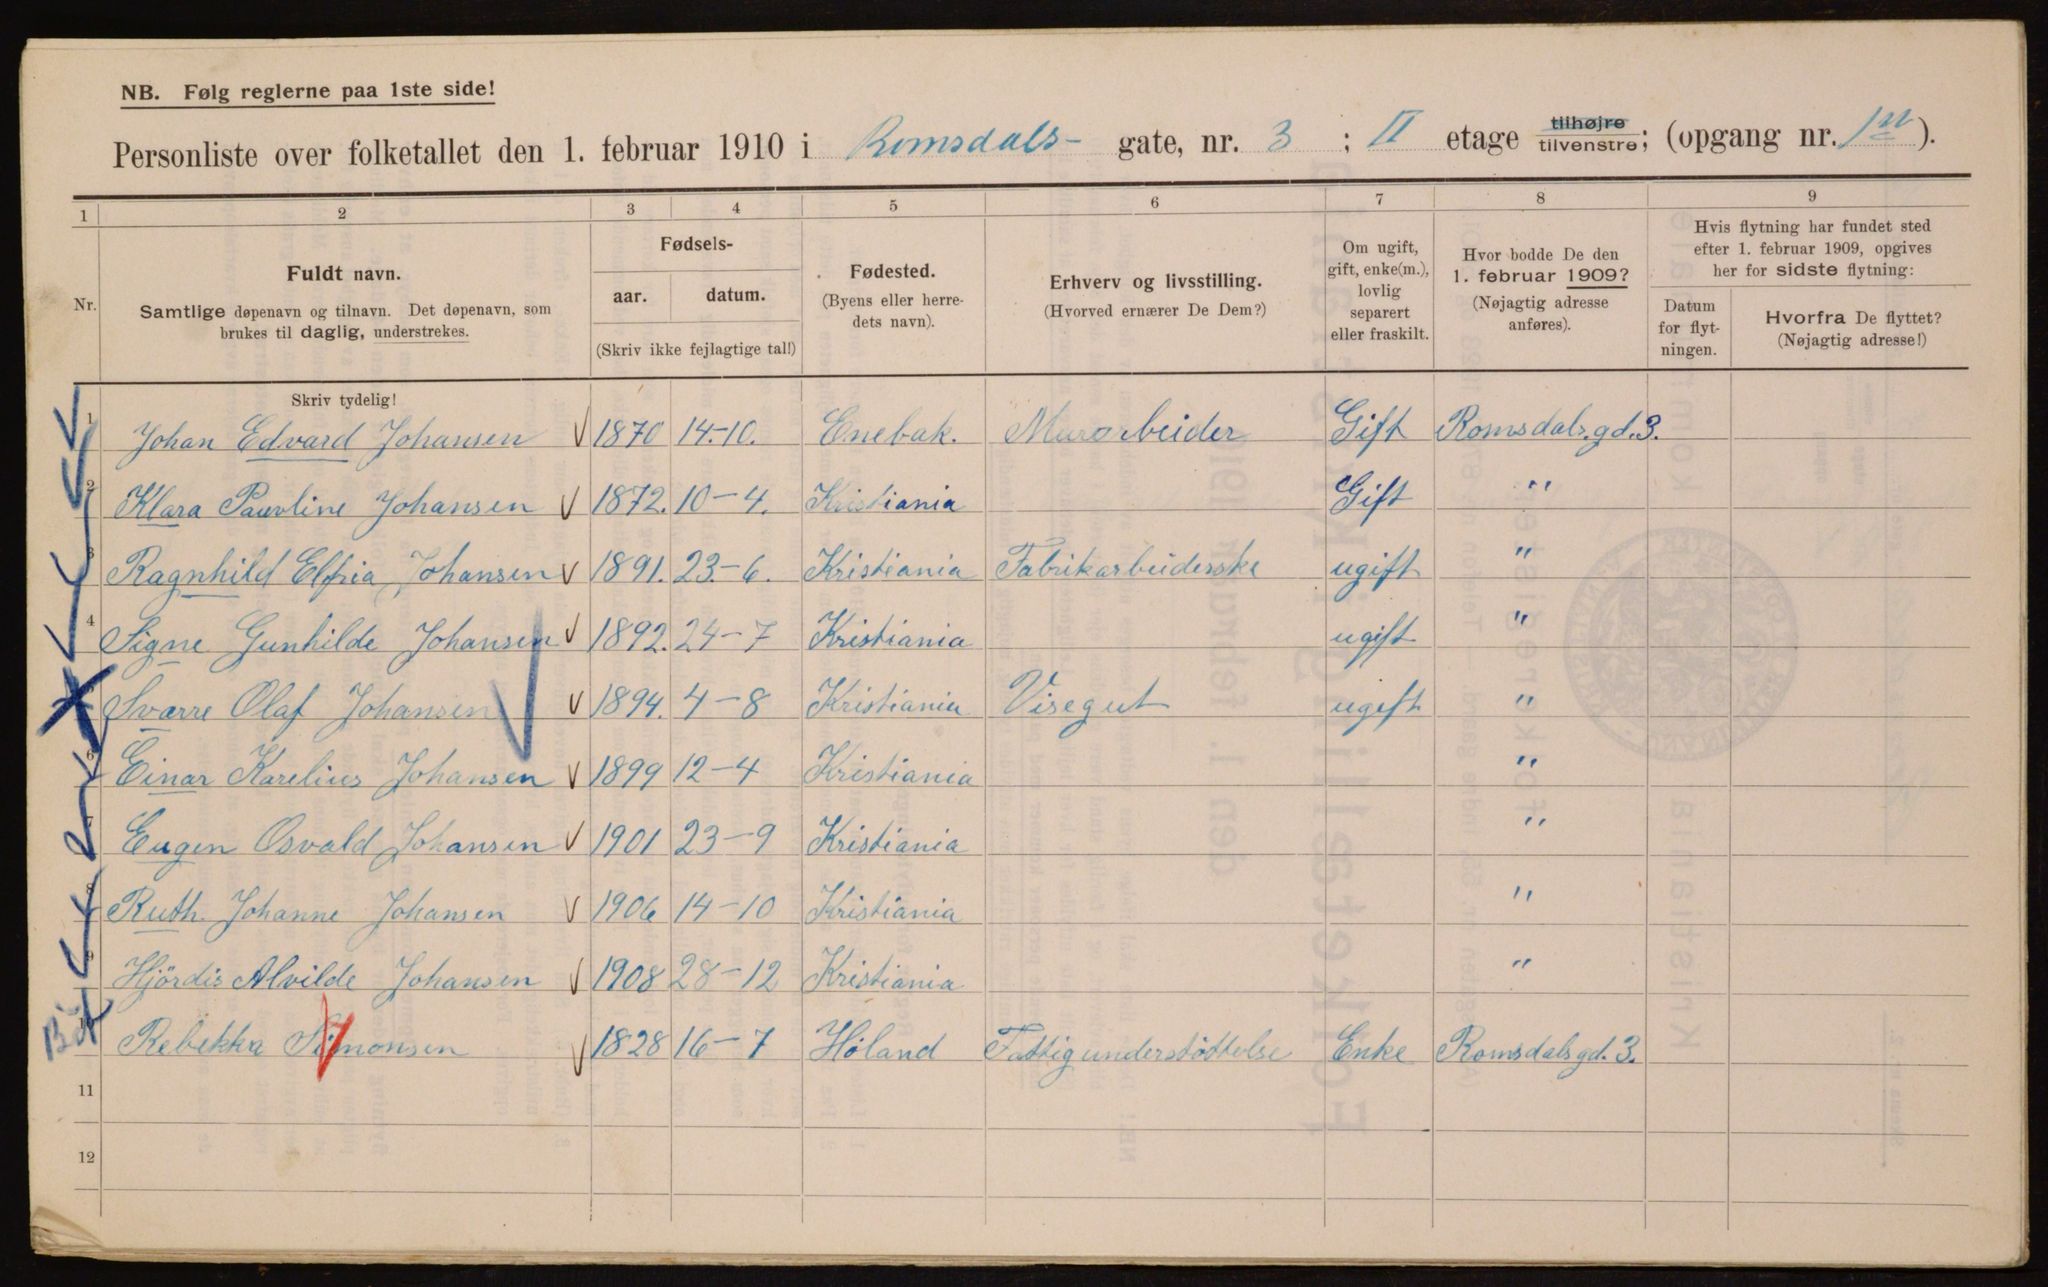 NB. Følg reglerne paa 1ste side!
Personliste over folketallet den 1. februar 1910 i Romsdals- gate, nr. 3 ; II etage tilhøjre tilvenstre; (opgang nr. 1st ).
1 2 3 4 5 6 7 8 9
Nr.
Fuldt navn.
Samtlige døpenavn og tilnavn. Det døpenavn, som
brukes til daglig, understrekes.
Fødsels-
aar. datum.
(Skriv ikke fejlagtige tal!)
Fødested.
(Byens eller herre-
dets navn).
Erhverv og livsstilling.
(Hvorved ernærer De Dem?)
Om ugift,
gift, enke(m.),
lovlig
separert
eller fraskilt.
Hvor bodde De den
1. februar 1909?
(Nøjagtig adresse
anføres).
Hvis flytning har fundet sted
efter 1. februar 1909, opgives
her for sidste flytning:
Datum
for flyt-
ningen.
Hvorfra De flyttet?
(Nøjagtig adresse!)
Skriv tydelig!
1 Johan Edvard Johansen 1870 14.-10. Enebak. Murarbeider Gift Romsdals.gd.3.
2 Klara Pauvline Johansen 1872. 10-4. Kristiania Gift "
3 Ragnhild Elfria Johansen 1891. 23.-6. Kristiania Fabrikarbeiderske ugift "
4 Signe Gunhilde Johansen 1892. 24-7 Kristiania ugift "
5 Sværre Olaf Johansen 1894. 4-8 Kristiania Visegut ugift "
6 Einar Karelius Johansen 1899 12-4 Kristiania "
7 Eugen Osvald Johansen 1901 23-9 Kristiania "
8 Ruth. Johanne Johansen 1906 14-10 Kristiania "
9 Hjördis Alvilde Johansen 1908 28-12 Kristiania "
10 Rebekka Simonsen 1828 16-7 Höland Fattigunderstöttelse Enke Romsdalsgd.3.
11
12